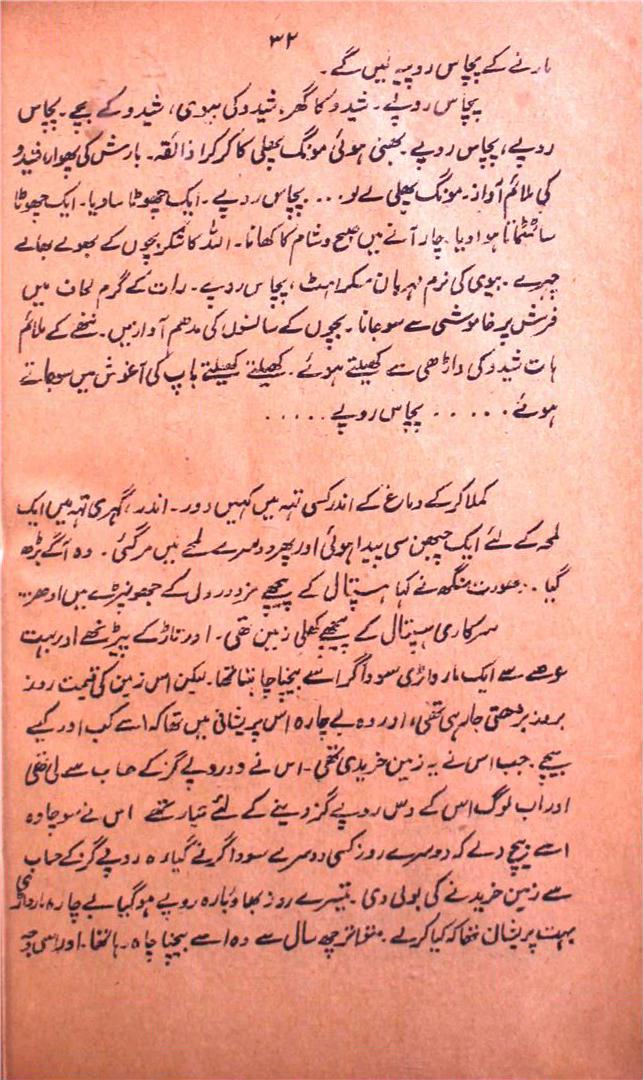 ۳۲
مارنے کے پچاس روپیہ لیں گے۔
پچاس روپے۔ شیدو کا گھر۔ شیدو کی بیوی، شیدو کے بچے۔ پچاس
روپے، پچاس روپے۔ بھنی ہوئی مونگ پھلی کا کرکرا ذائقہ۔ بارش کی پھوار، فیدو
کی ملائم آواز۔ مونگ پھلی لے لو... پچاس روپے۔ ایک چھوٹا سا دیا۔ ایک چھوٹا
سا ٹمٹماتا ہوا دیا۔ چار آنے میں صبح و شام کا کھانا۔ اللہ کا شکر بچوں کے بھولے بھالے
چہرے۔ بیوی کی نرم مہربان مسکراہٹ، پچاس روپے۔ رات کے گرم لحاف میں
فرش پر خاموشی سے سو جانا۔ بچوں کے سانسوں کی مدھم آوازیں۔ ننھے کے ملائم
ہات شیدو کی داڑھی سے کھیلتے ہوئے۔ کھیلتے کھیلتے باپ کی آغوش میں سو جاتے
ہوئے..... پچاس روپے.....
کملا کر کے دماغ کے اندر کسی تہہ میں کہیں دور۔ اندر، گہری تہہ میں ایک
لمحہ کے لئے ایک چبھن سی پیدا ہوئی اور پھر دوسرے لمحے میں مر گئی۔ وہ آگے بڑھ
گیا .. عورت سنگھ نے کہا ہسپتال کے پیچھے مزدوروں کے جھونپڑے ہیں ادھر...
سرکاری ہسپتال کے پیچھے کھلی زمین تھی۔ اور تاڑ کے پیڑ تھے اور بہت
عرصے سے ایک مارواڑی سوداگر اسے بیچنا چاہتا تھا۔ لیکن اس زمین کی قیمت روز
بروز بڑھتی جا رہی تھی، اور وہ بے چارہ اس پریشانی میں تھا کہ اسے کب اور کیسے
بیچے۔ جب اس نے یہ زمین خریدی تھی۔ اس نے دو روپے گز کے حساب سے لی تھی
اور اب لوگ اس کے دس روپے گز دینے کے لئے تیار تھے اس نے سوچا وہ
اسے بیچ دے کہ دوسرے روز کسی دوسرے سوداگر نے گیارہ روپے گز کے حساب
سے زمین خریدنے کی بولی دی۔ تیسرے روز بھاؤ بارہ روپے ہو گیا بے چارہ مارواڑی
بہت پریشان تھا کہ کیا کرے۔ متواتر چھ سال سے وہ اسے بیچنا چاہ رہا تھا۔ اور اسی وجہ